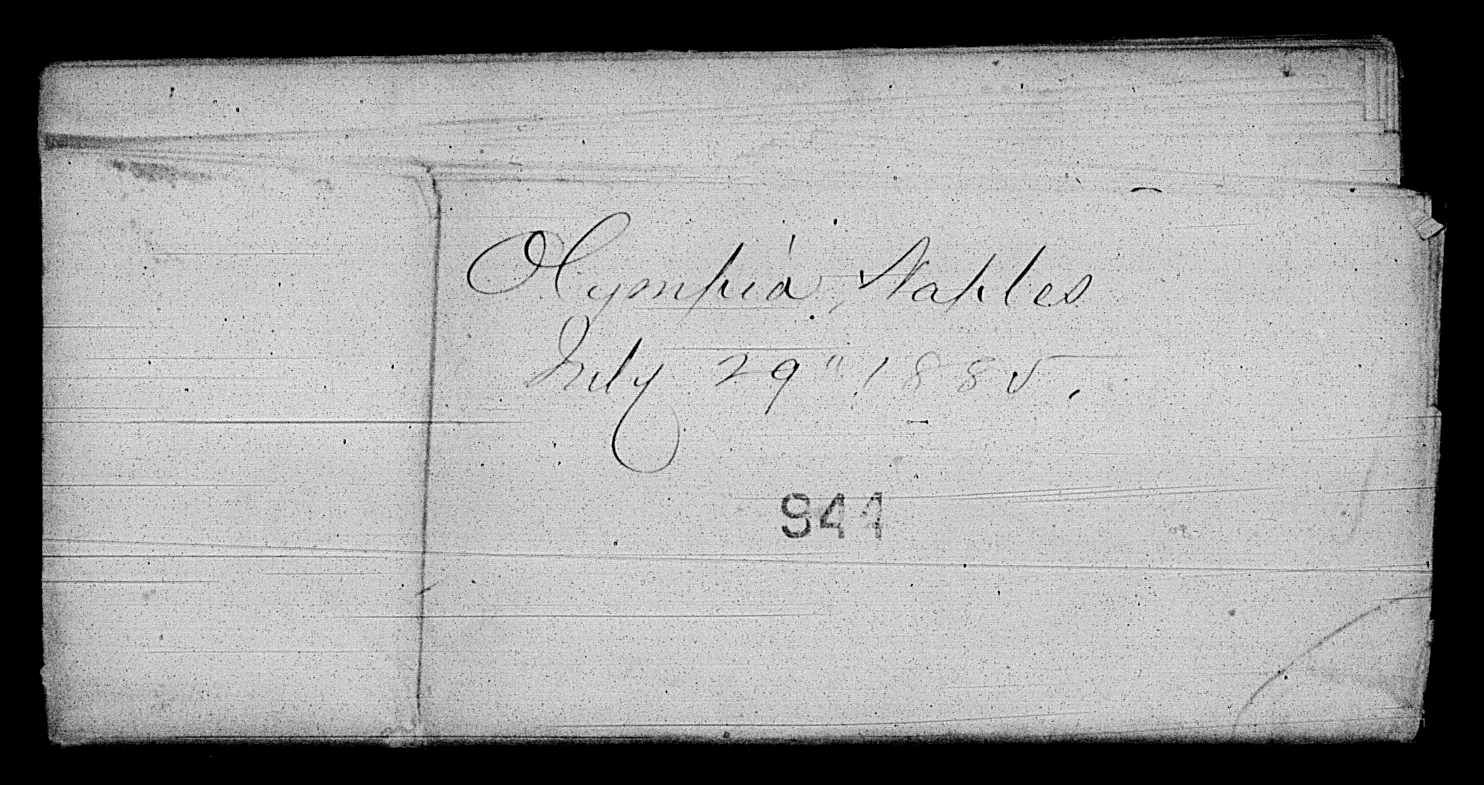 Olympia, Naples
July 29" 1885.
944